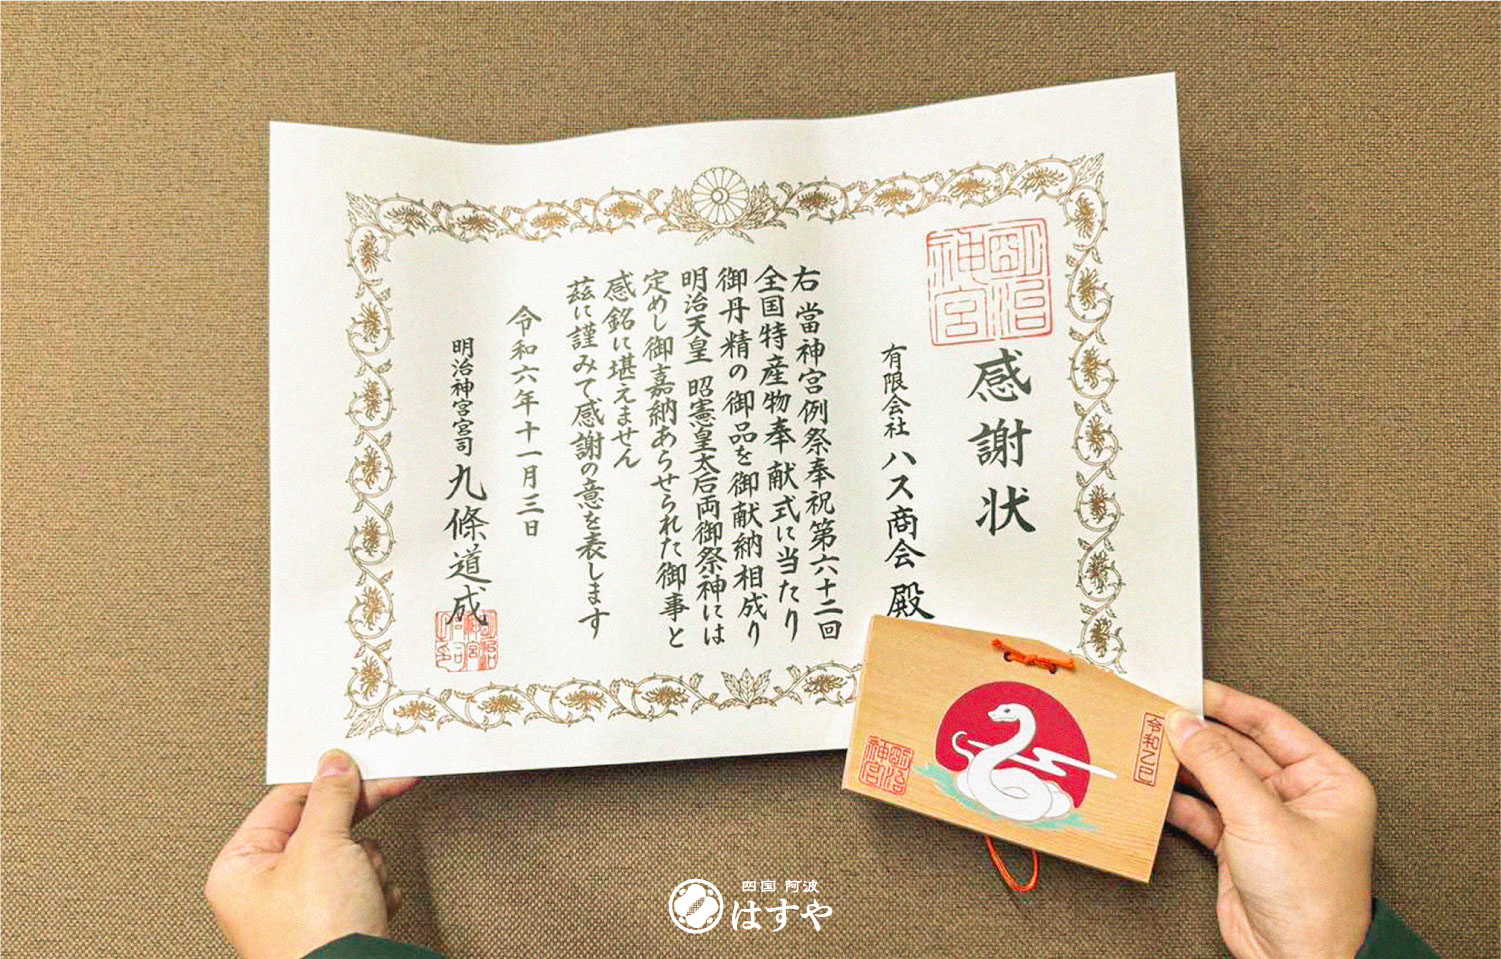 感謝状
明治神宮
有限会社 ハス商会 殿
右 當神宮例祭奉祝第六十二回
全国特産物奉献式に当たり
御丹精の御品を御献納相成り
明治天皇 昭憲皇太后両御祭神には
定めし御嘉納あらせられた御事と
感銘に堪えません
茲に謹みて感謝の意を表します
令和六年十一月三日
明治神宮宮司 九條道成
令和乙巳
明治神宮
四国 阿波
はすや